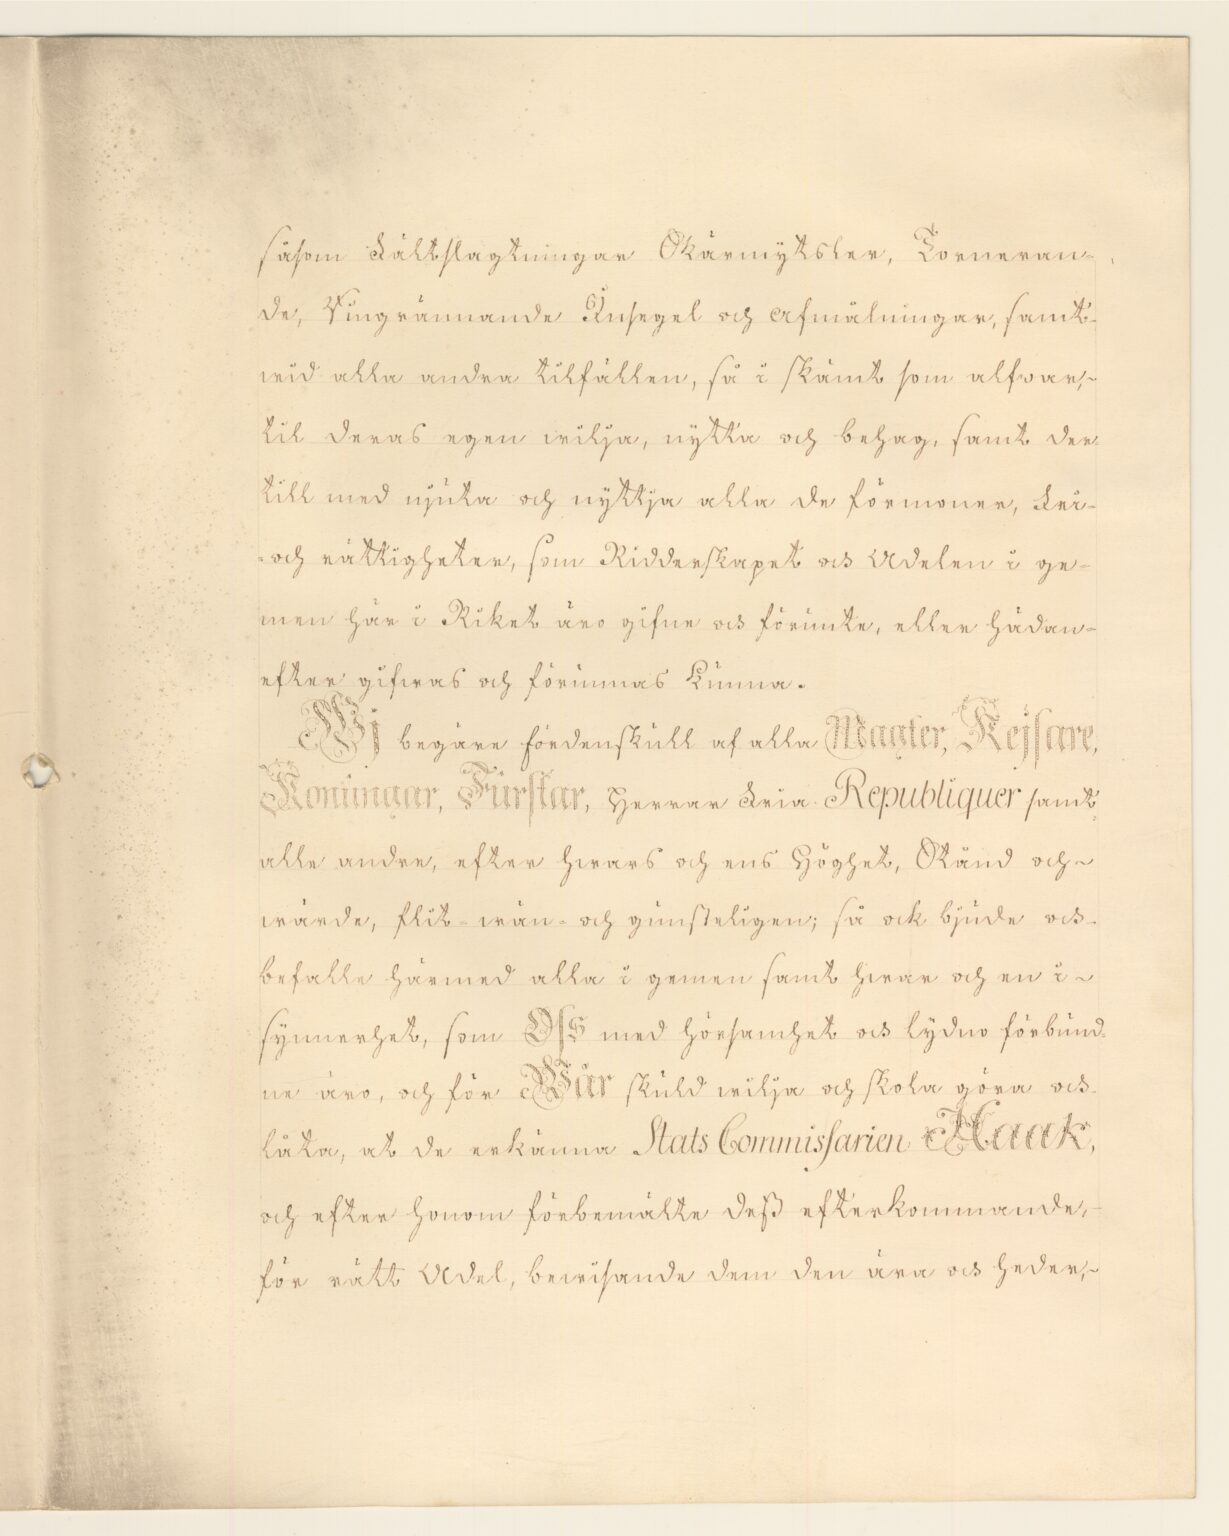 såsom Fältslagtningar Skärmytsler, Torneran-
de, Ringrännande Insegel och Afmålningar, samt-
wid alla andra tilfällen, så i skämt som alfwar,~
til deras egen wilja, nytta och behag, samt der-
till med njuta och nyttja alla de förmoner, fri-
-och rättigheter, som Ridderskapet och Adelen i ge-
men här i Riket äro gifne och förunte, eller hädan-
efter gifwas och förunnas kunna.
Wj begäre fördenskull af alla Magter, Kejsare,
Konungar, Furstar, Herrar Fria Republiquer samt
alle andre, efter hwars och ens Höghet, Stånd och~
wärde, flit-wän-och gunsteligen; så ock bjude och-
befalle härmed alla i gemen samt hwar och en i~
synnerhet, som Oss med hörsamhet och lydno förbund-
ne äro, och för Wår skuld wilja och skola göra och-
låta, at de erkänna Stats Commissarien Haak,
och efter honom förbemälte desß efterkommande,-
för rätt Adel, bewisande dem den ära och heder,~